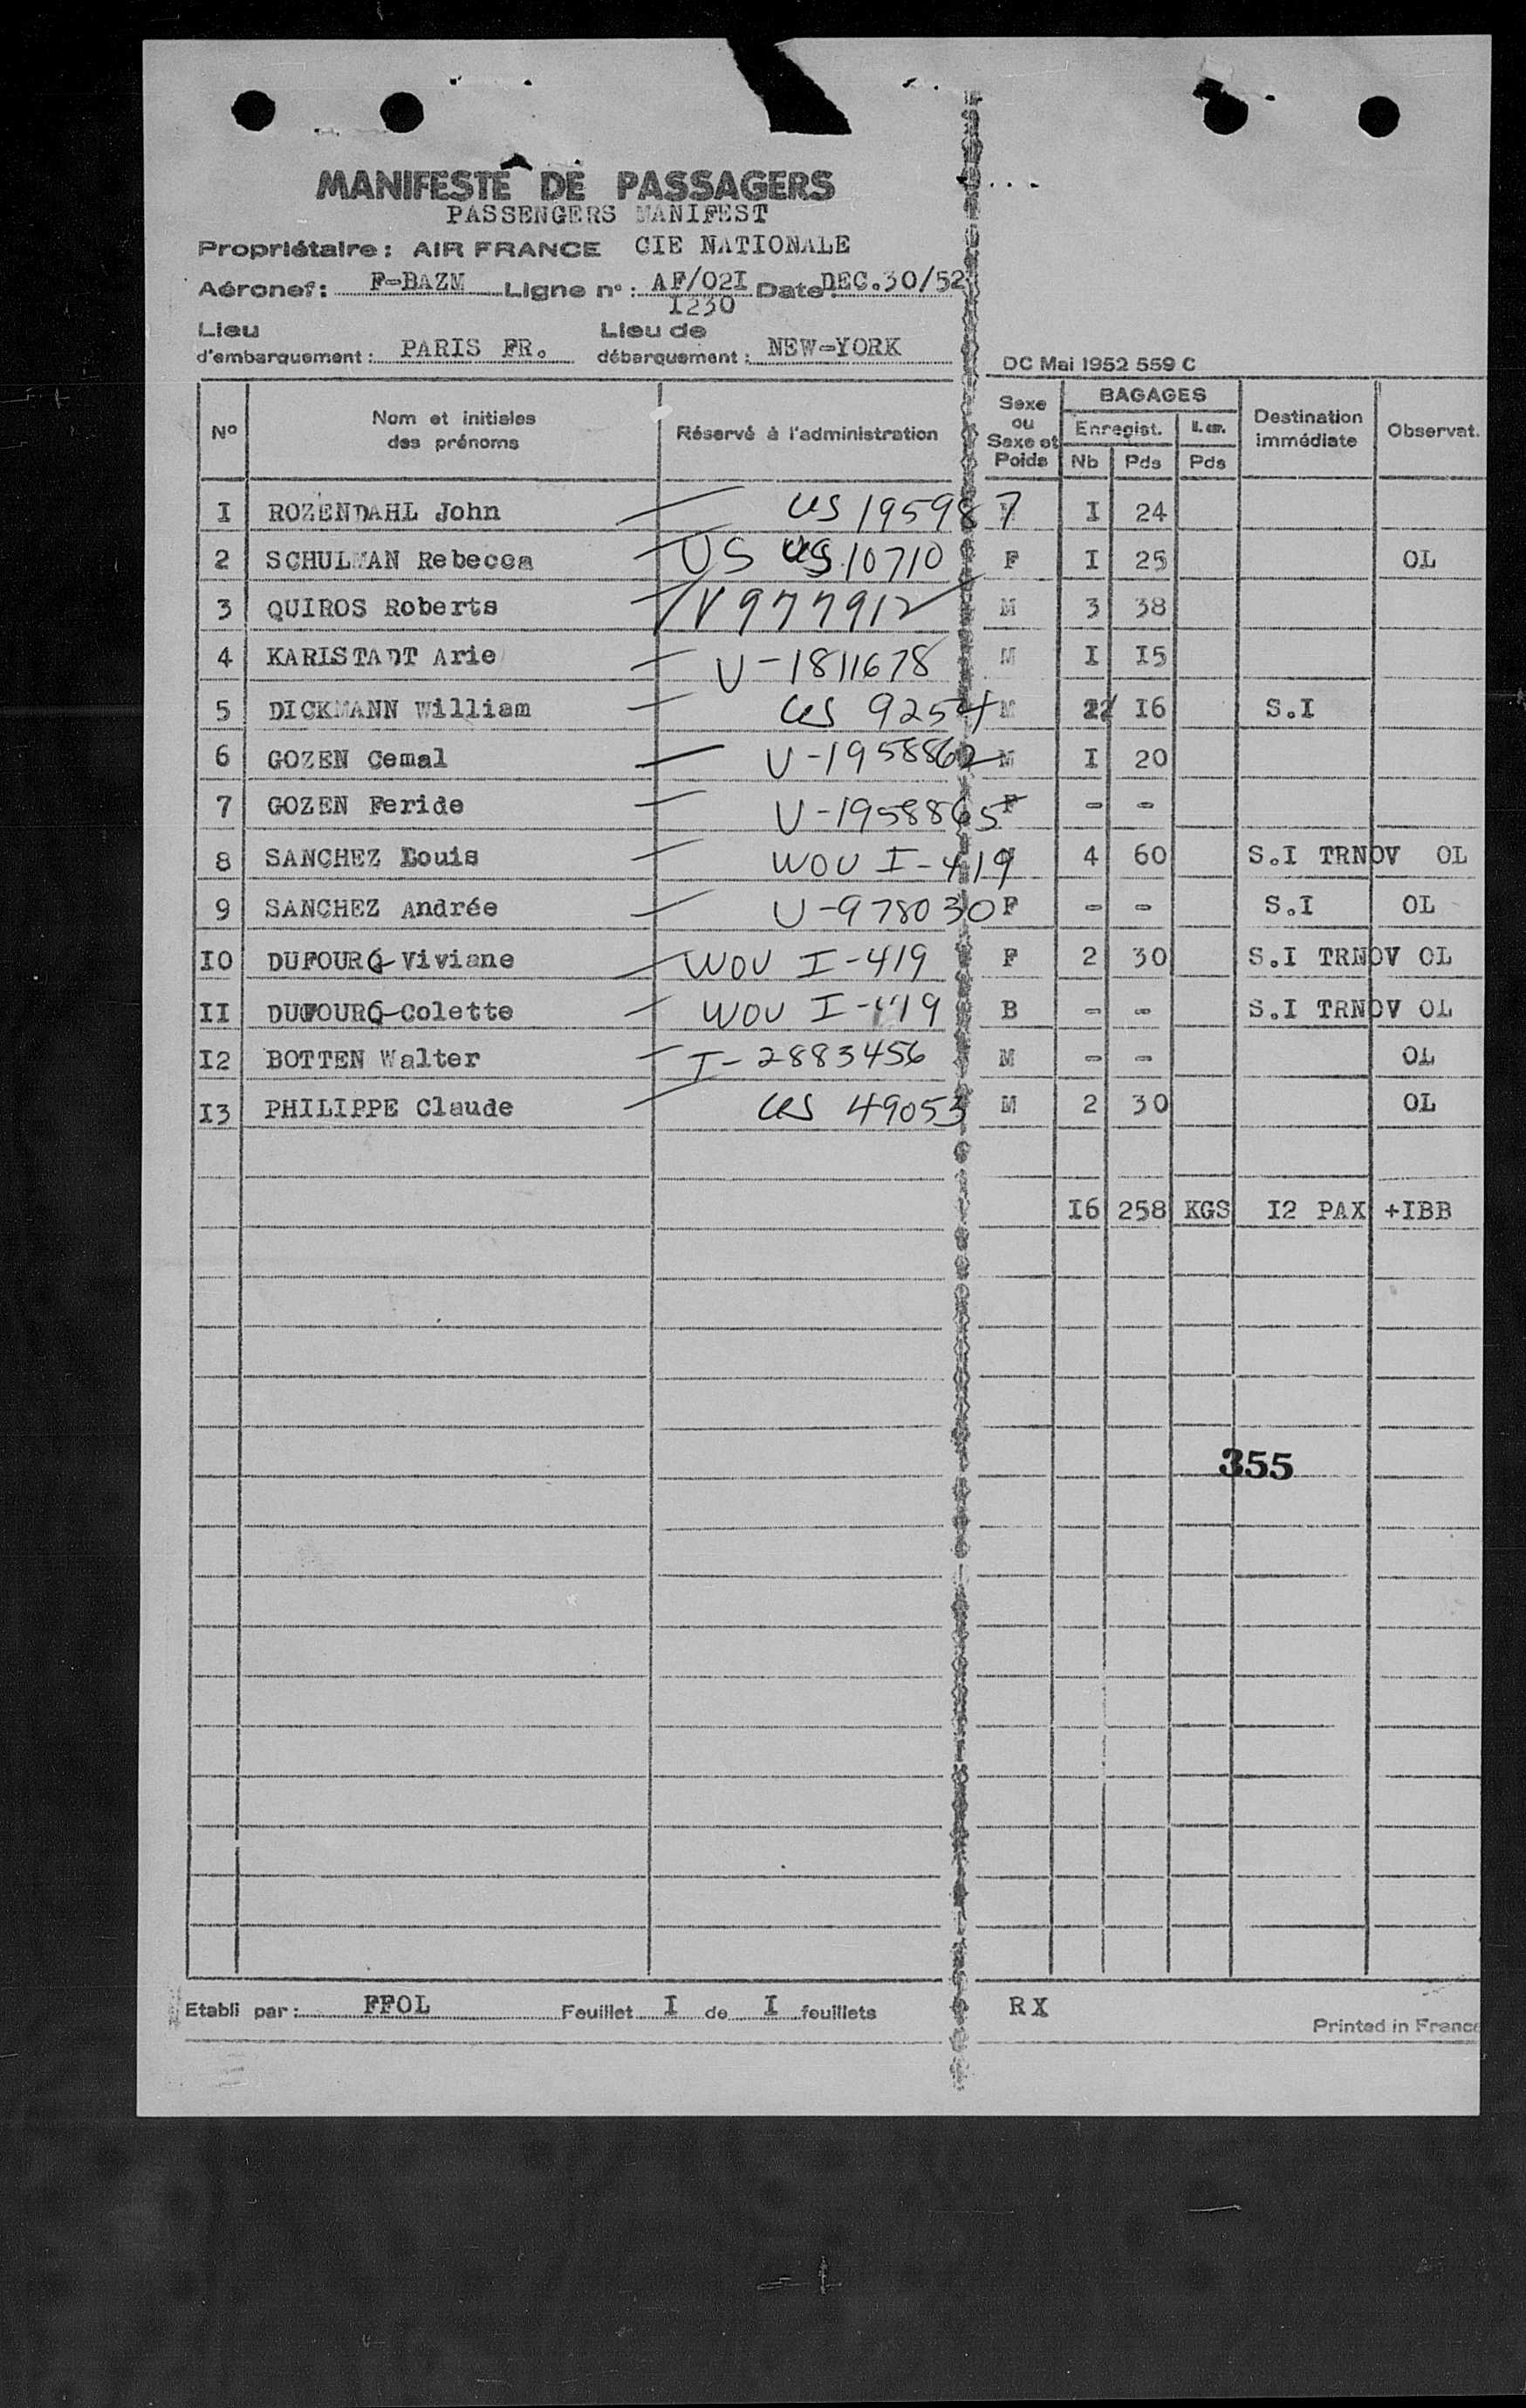 MANIFESTE DE PASSAGERS
PASSENGERS MANIFEST
Propriétaire : AIR FRANCE CIE NATIONALE
Aéronef : F-BAZM Ligne n° : AF/02I Date : DEC.30/52
I230
Lieu d'embarquement : PARIS FR. Lieu de débarquement : NEW-YORK
DC Mai 1952 559 C
N° Nom et initiales des prénoms Réservé à l'administration Sexe ou Sexe et Poids BAGAGES Enregist. Nb Pds Pds Destination immédiate Observat.
I ROZENDAHL John US 195987 I 24
2 SCHULMAN Rebecca US US 10710 F I 25 OL
3 QUIROS Roberts V977912 M 3 38
4 KARLSTADT Arie U-1811678 M I I5
5 DICKMANN William US 9254 M I6 S.I
6 GOZEN Cemal U-1958862 M I 20
7 GOZEN Feride U-1958865 F - -
8 SANCHEZ Louis WOV I-419 4 60 S.I TRNOV OL
9 SANCHEZ Andrée U-978030 F - - S.I OL
I0 DUFOURG-Viviane WOV I-419 F 2 30 S.I TRNOV OL
II DUFOURG-Colette WOV I-419 B - - S.I TRNOV OL
I2 BOTTEN Walter I-2883456 M - - OL
I3 PHILIPPE Claude US 49053 M 2 30 OL
I6 258 KGS I2 PAX +IBB
355
Etabli par : FFOL Feuillet I de I feuillets RX
Printed in France